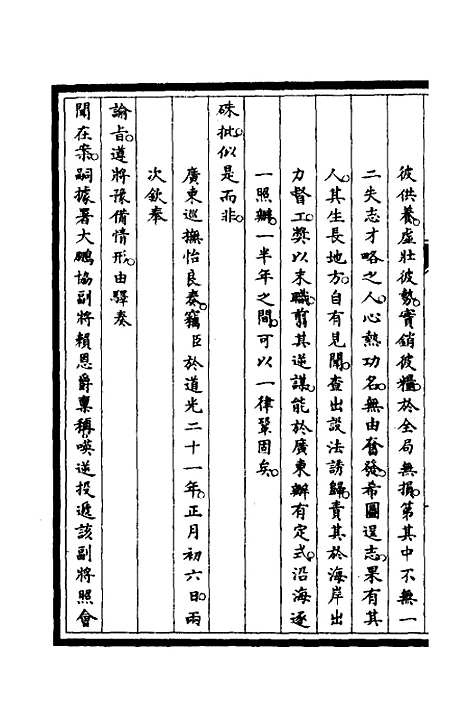 彼供養。虛壯彼勢。實銷彼糧。於全局無損。第其中不無一
二失志才略之人。心熱功名。無由奮發。希圖逞志。果有其
人。其生長地方。自有見聞。查出設法誘歸。責其於海岸出
力督工。獎以末職。剪其逆謀。能於廣東辦有定式。沿海逐
一照辦。一半年之間。可以一律鞏固矣。
硃批。似是而非。
廣東巡撫怡良奏。竊臣於道光二十一年。正月初六日。兩
次欽奉
諭旨。遵將豫備情形。由驛奏
聞在案。嗣據署大鵬協副將賴恩爵稟稱。𠸄逆投遞該副將照會